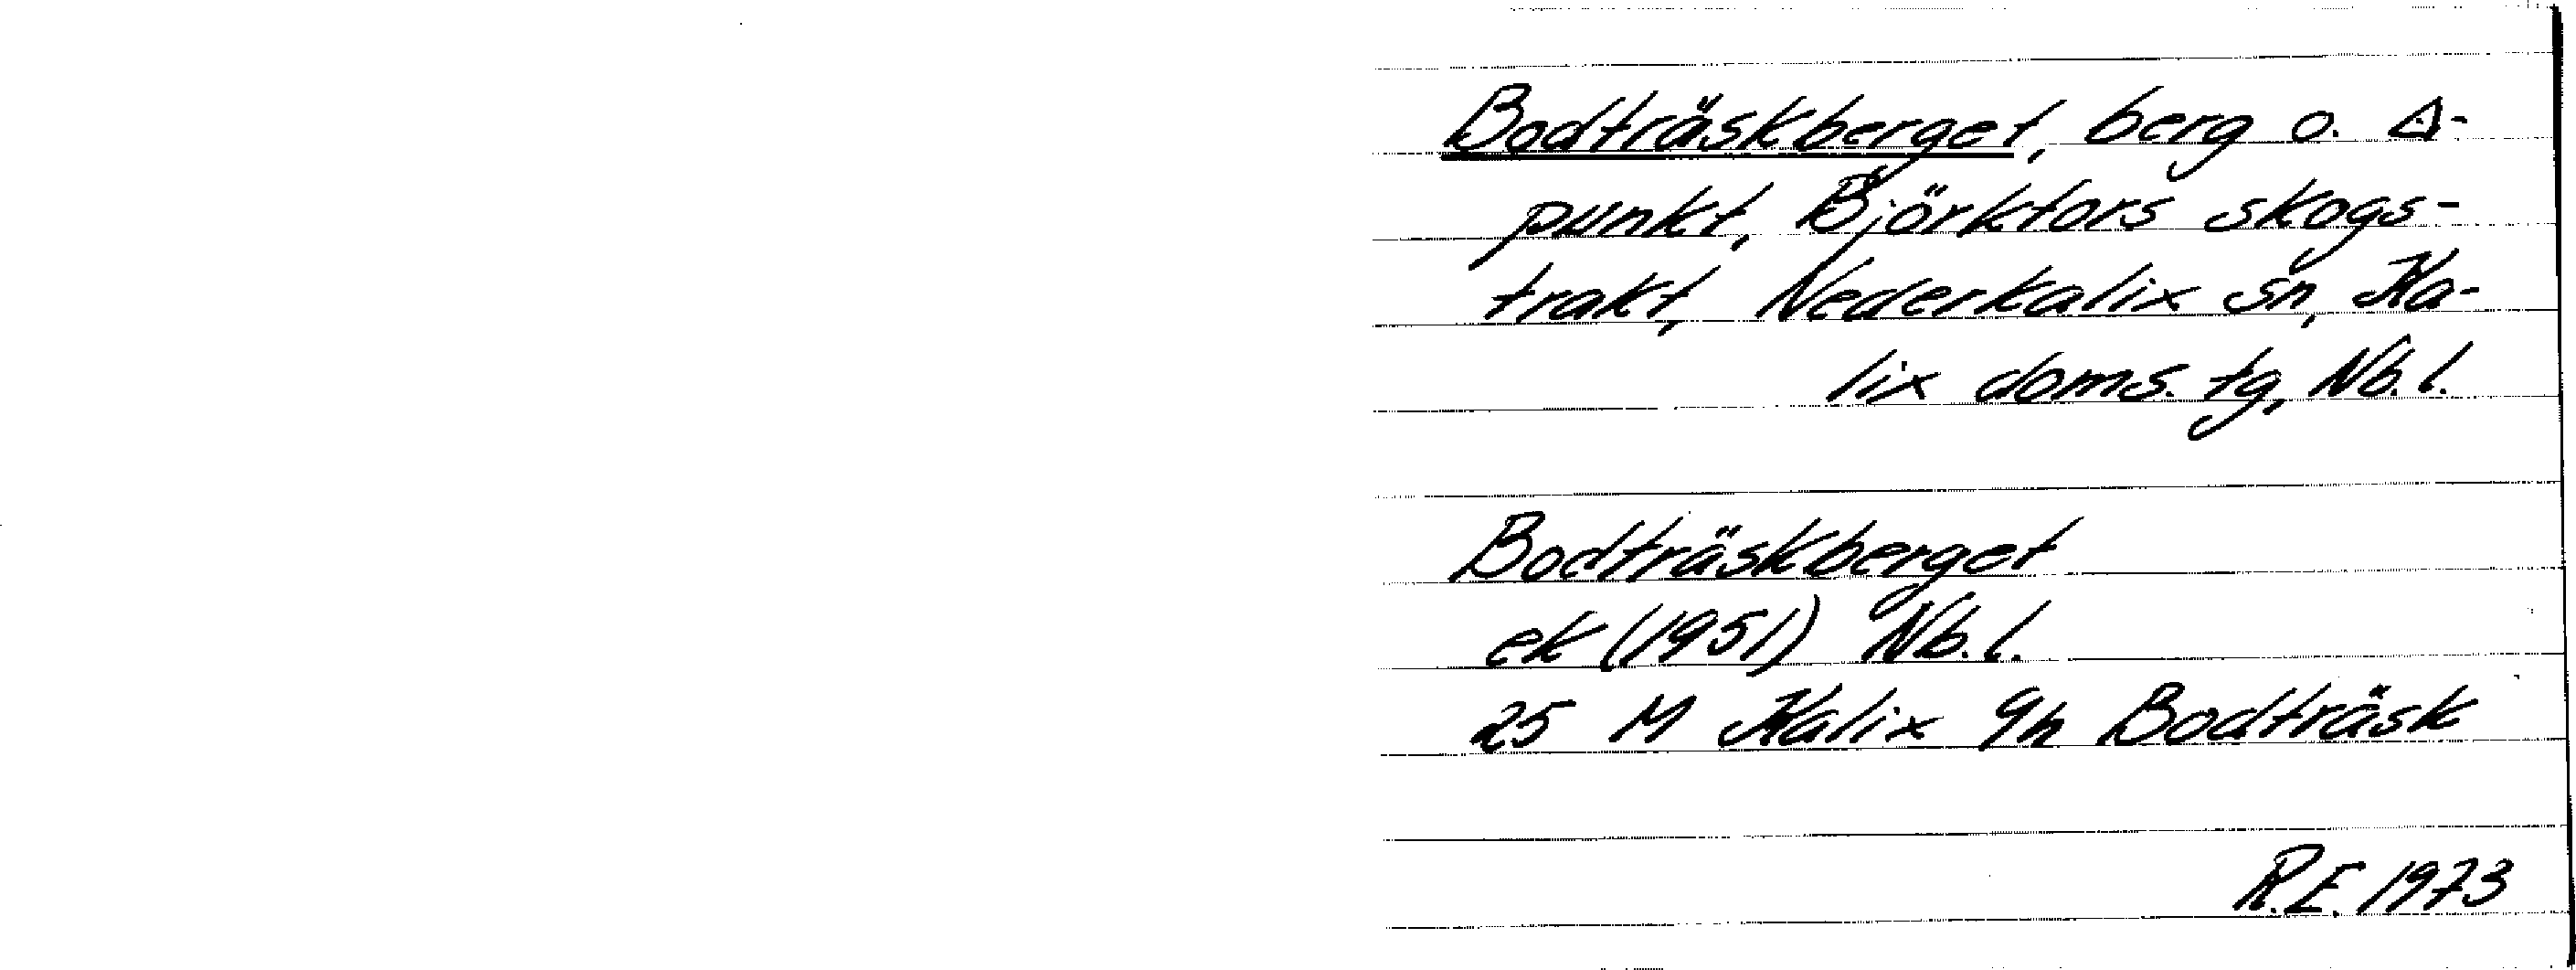 Bodträskberget, berg o. △-
punkt, Björkfors skogs-
trakt, Nederkalix sn, Ka-
lix doms. tg, Nb. l.
Bodträskberget
ek (1951) Nb. l.
25 M Kalix 9h Bodträsk
R.E. 1973